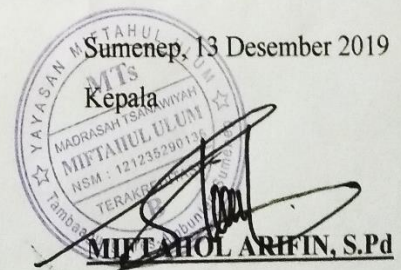 Sumenep, 13 Desember 2019
Kepala
YAYASAN MIFTAHUL ULUM
MTs
MADRASAH TSANAWIYAH
MIFTAHUL ULUM
NSM : 121235290136
TERAKREDITASI
B
Sumenep
MIFTAHOL ARIFIN, S.Pd